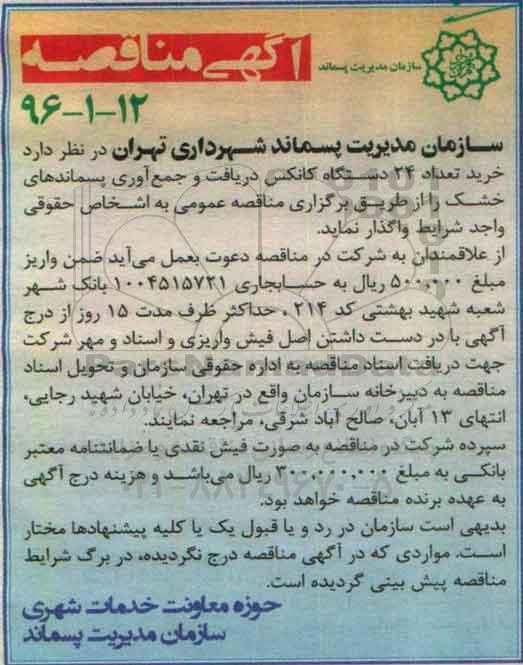 سازمان مدیریت پسماند
آگهی مناقصه
۹۶-۱-۱۲
سازمان مدیریت پسماند شهرداری تهران در نظر دارد
خرید تعداد ۲۴ دستگاه کانکس دریافت و جمع‌آوری پسماندهای
خشک را از طریق برگزاری مناقصه عمومی به اشخاص حقوقی
واجد شرایط واگذار نماید.
از علاقمندان به شرکت در مناقصه دعوت بعمل می‌آید ضمن واریز
مبلغ ۵۰۰,۰۰۰ ریال به حسابجاری ۱۰۰۴۵۱۵۷۲۱ بانک شهر
شعبه شهید بهشتی کد ۲۱۴ ، حداکثر ظرف مدت ۱۵ روز از درج
آگهی با در دست داشتن اصل فیش واریزی و اسناد و مهر شرکت
جهت دریافت اسناد مناقصه به اداره حقوقی سازمان و تحویل اسناد
مناقصه به دبیرخانه سازمان واقع در تهران، خیابان شهید رجایی،
انتهای ۱۳ آبان، صالح آباد شرقی، مراجعه نمایند.
سپرده شرکت در مناقصه به صورت فیش نقدی یا ضمانتنامه معتبر
بانکی به مبلغ ۳۰۰,۰۰۰,۰۰۰ ریال می‌باشد و هزینه درج آگهی
به عهده برنده مناقصه خواهد بود.
بدیهی است سازمان در رد و یا قبول یک یا کلیه پیشنهادها مختار
است. مواردی که در آگهی مناقصه درج نگردیده، در برگ شرایط
مناقصه پیش بینی گردیده است.
حوزه معاونت خدمات شهری
سازمان مدیریت پسماند